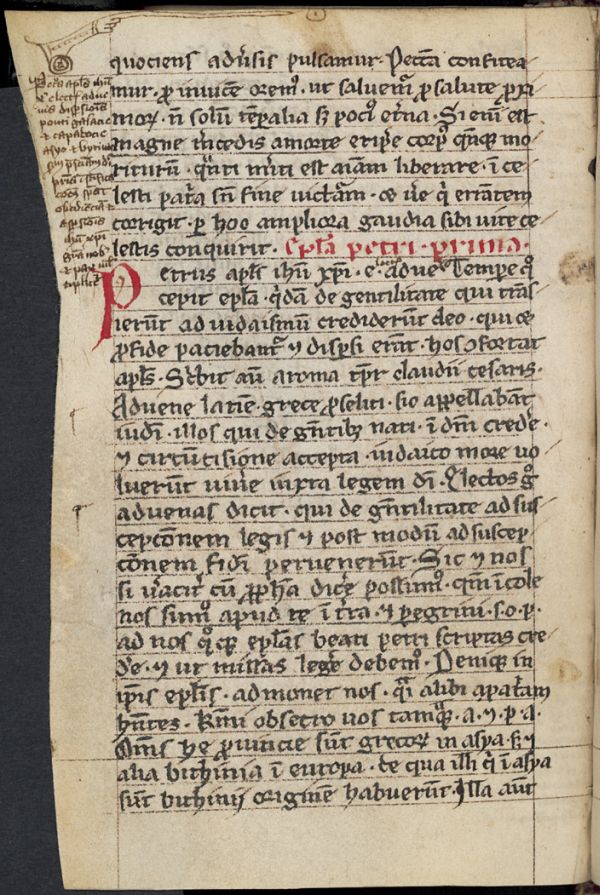 quociens adūsis pulsamur. Peccͣta confitea
mur. ꝓ inuicē oremꝰ. ut saluemͬ ꝓ salute ꝓxi
moꝝ. n̄ solū tēpalia sꝫ pocͥꝰ etͥna. Si enī est
magne mͥcedis a morte eripͥe corpꝰ qͣnqꝫ mo
riturū. qͣnti mͥiti est aīam liberare. ī ce
lesti patͥa sn̄ fine uictͣam. ꝙ uͥe qͥ errātem
corrigit. ꝑ hoc ampliora gaudia sibi uite ce
lestis conquirit. Epl̄a petri. prima.
Petrus apl̄s ih̄u xp̄i. e. lectis adue. Tempe qͦ
cepit epl̄a. qͥdā de gentilitate qui trās
ierūt ad iudaismū crediderūt deo. qui ꝙ
ꝓ fide paciebantͬ ⁊ disꝑsi erāt. hos ꝯfortat
apl̄s. Scͥbit aū a roma tp̄r claudii cesaris.
Aduene latine. grece ꝓseliti. sic appellabant
iudei. illos qui de gn̄tibꝫ nati. ī dm̄ credeͬ.
⁊ circūcisione accepta. iudaico more uo
luerūt uiuͥe iuxta legem dī. Electos gͦ
aduenas dicit. qui de gn̄tilitate ad sus
cepcionem legis ⁊ post modū ad suscep
cōnem fidei peruenerūt. Sic ⁊ nos
si uͥaciͭ cū ꝓph̄a dicͥe possimꝰ. qm̄ īcole
nos sumꝰ apud te ī tͥra. ⁊ ꝑegrini. s. o. p.
ad nos qͦqꝫ epl̄as beati petri scriptas cre
dͥe. ⁊ ut missas legͥe debemꝰ. Deniqꝫ in
ip̄is epl̄is. admonet nos. qͣi alibi a patͥam
hn̄tes. Kmī obsecro uos tamqͣꝫ. a. ⁊. p. a.
Om̄s he ꝓuincie sūt grecoꝝ in asya. sꝫ ⁊
alia bithinia ī europa. de qua illi qͥ ī asya
sūt bithinii originē habuerūt. Illa aūt